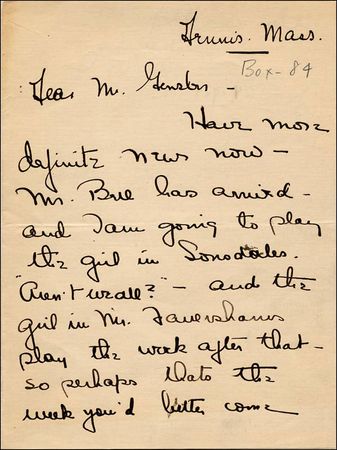 Dennis. Mass.
Box - 84
Dear Mr.
Have more
definite news now -
Mr. has arrived -
and I am going to play
the girl in Lonsdales.
"Aren't we all?" - and the
girl in Mr. Favershams
play the week after that -
so perhaps thats the
week you'd better come